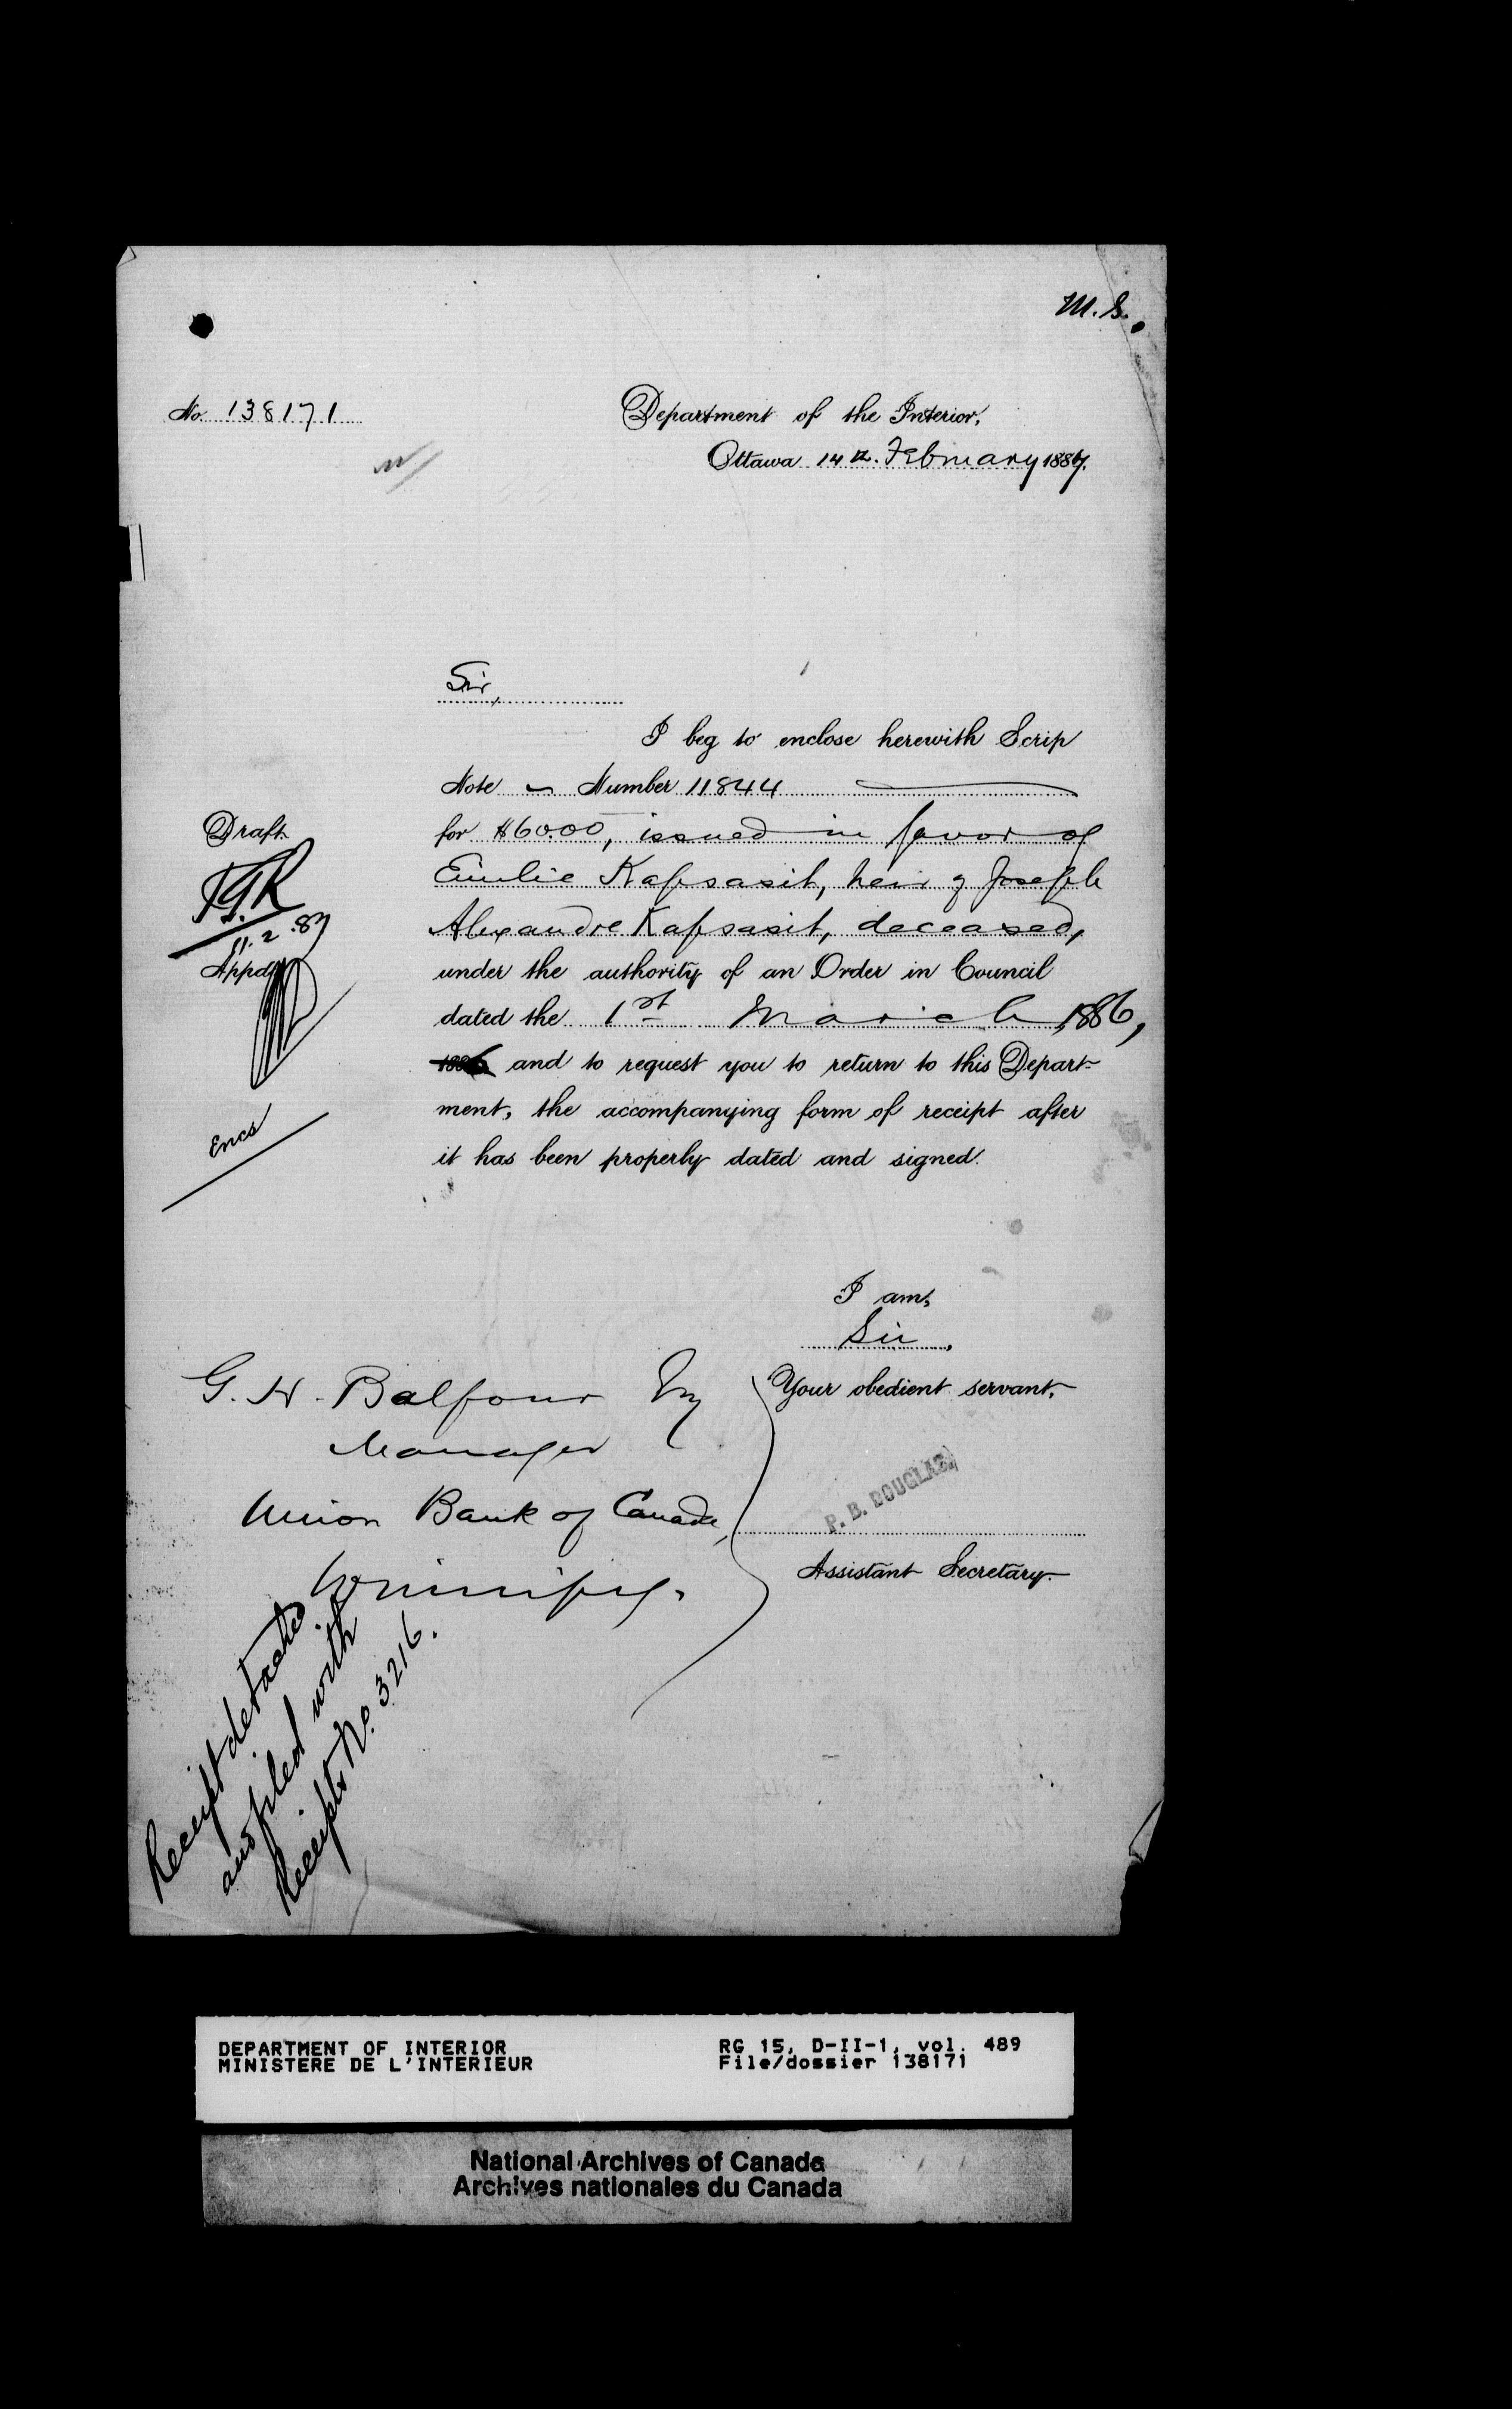 M. S.
No. 138171
Department of the Interior,
Ottawa 14th. February 1887.
Sir,
I beg to enclose herewith Scrip
Note Number 11844
for $60.00, issued in favor of
Emilie Kapsasit, heir of Joseph
Alexandre Kapsasit, deceased,
under the authority of an Order in Council
dated the 1st March, 1886,
and to request you to return to this Depart-
ment, the accompanying form of receipt after
it has been properly dated and signed.
Draft
11.2.87
Appd
Encs
I am,
Sir,
Your obedient servant,
P. B. DOUGLAS,
Assistant Secretary.
G. H. Balfour Esq
Manager
Union Bank of Canada,
Winnipeg.
Receipt detached
and filed with
Receipts No. 3216.
DEPARTMENT OF INTERIOR
MINISTERE DE L'INTERIEUR
RG 15, D-II-1, vol. 489
File/dossier 138171
National Archives of Canada
Archives nationales du Canada